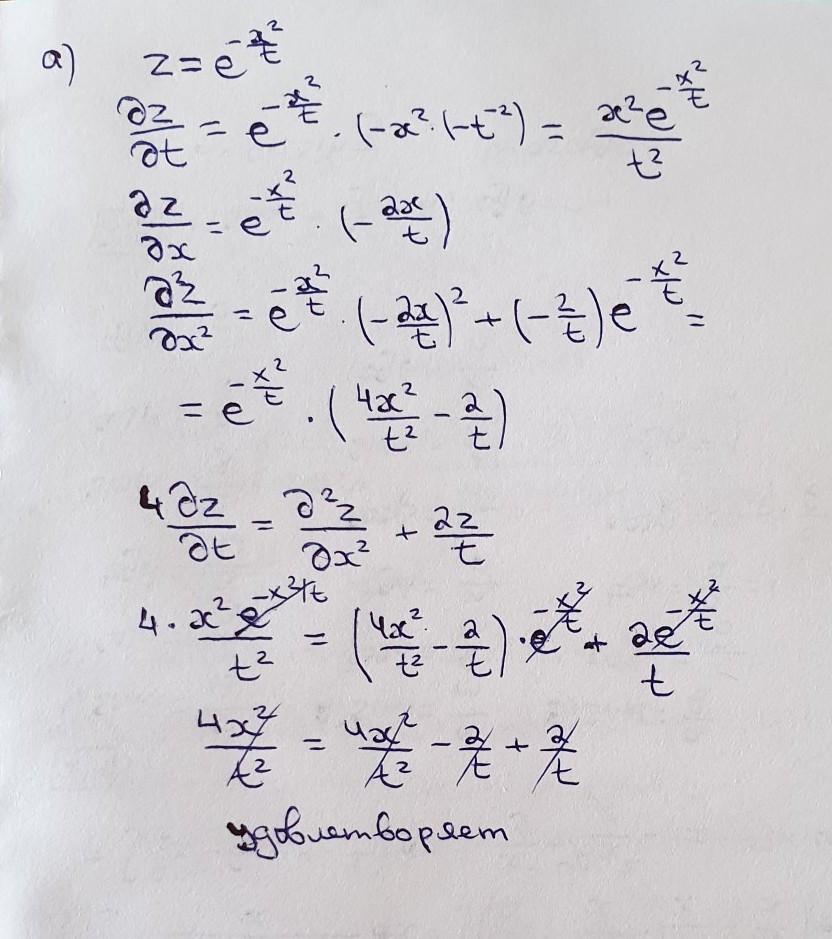 а) z = e^{-x²/t}
∂z/∂t = e^{-x²/t} · (-x² · (-t⁻²) = x²e^{-x²/t}/t²
∂z/∂x = e^{-x²/t} · (-2x/t)
∂²z/∂x² = e^{-x²/t} · (-2x/t)² + (-2/t)e^{-x²/t} =
= e^{-x²/t} · (4x²/t² - 2/t)
4 ∂z/∂t = ∂²z/∂x² + 2z/t
4 · x²e^{-x²/t}/t² = (4x²/t² - 2/t) · e^{-x²/t} + 2e^{-x²/t}/t
4x²/t² = 4x²/t² - 2/t + 2/t
удовлетворяет